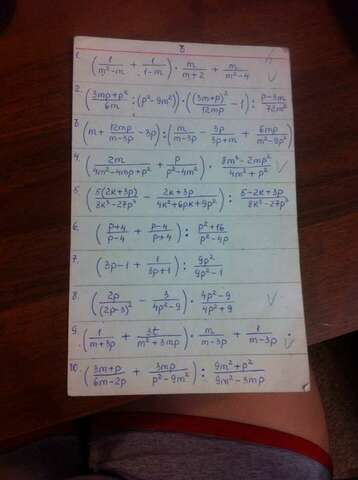 8
1. (1/(m²-m) + 1/(1-m)) · m/(m+2) + m/(m²-4)
2. ((3mp+p²)/6m : (p²-9m²)) · ((3m+p)²/12mp - 1) : (p-3m)/72m²
3. (m + 12mp/(m-3p) - 3p) : (m/(m-3p) - 3p/(3p+m) + 6mp/(m²-9p²))
4. (2m/(4m²-4mp+p²) + p/(p²-4m²)) · (8m³-2mp²)/(4m²+p²)
5. (5(2k+3p)/(8k³-27p³) - (2k+3p)/(4k²+6pk+9p²)) : (5-2k+3p)/(8k³-27p³)
6. ((p+4)/(p-4) + (p-4)/(p+4)) : (p²+16)/(p²-4p)
7. (3p-1 + 1/(3p+1)) : 9p²/(9p²-1)
8. (2p/(2p-3)² - 3/(4p²-9)) · (4p²-9)/(4p²+9)
9. (1/(m+3p) + 3t/(m²+3mp)) · m/(m-3p) + 1/(m-3p) .
10. ((3m+p)/(6m-2p) + 3mp/(p²-9m²)) : (9m²+p²)/(9m²-3mp)